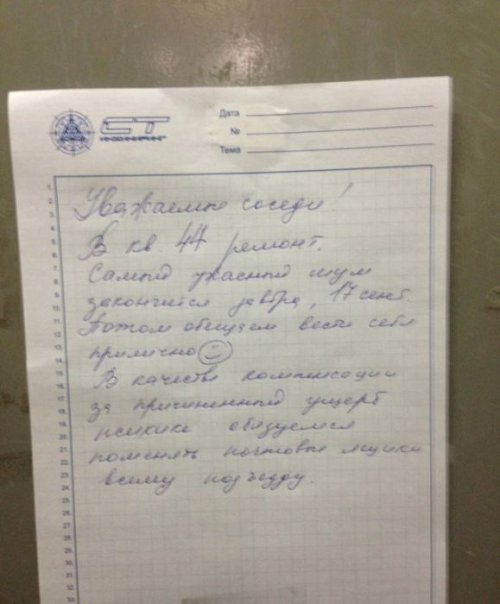 СТ
Дата
№
Тема
Уважаемые соседи!
В кв 44 ремонт.
Самый ужасный шум
закончится завтра, 17 сент.
Потом обещаем вести себя
прилично☺
В качестве компенсации
за причиненный ущерб
психике обязуемся
поменять почтовые ящики
всему подъезду.